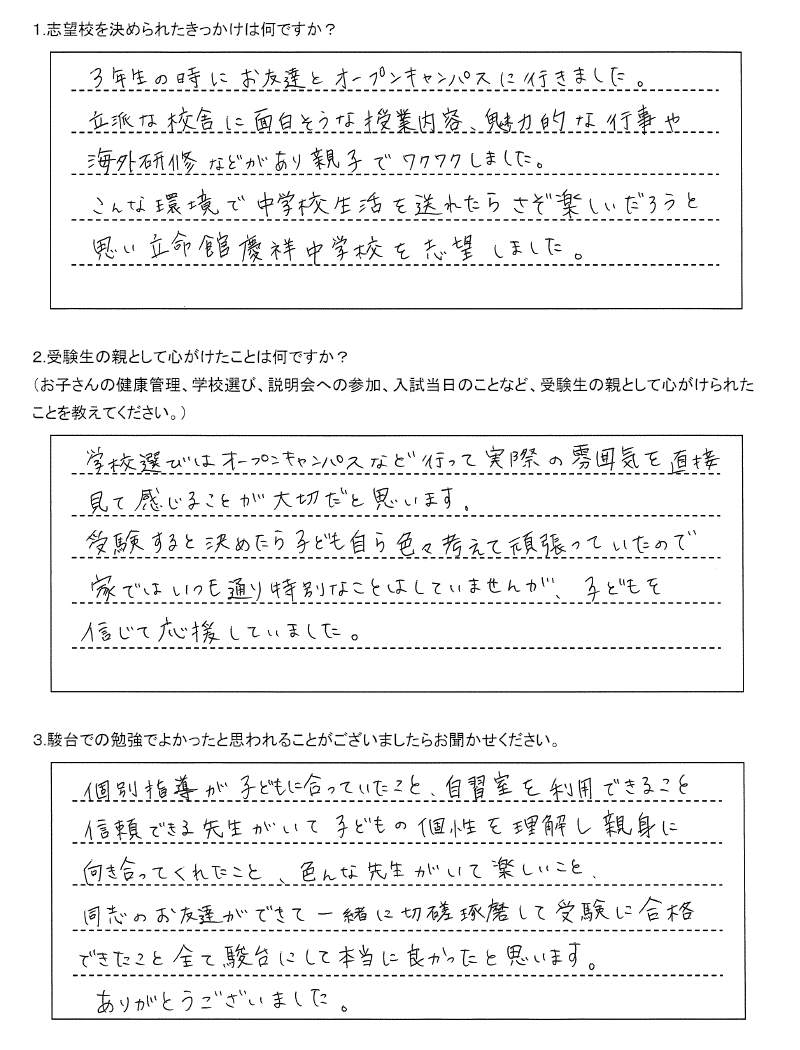 1.志望校を決められたきっかけは何ですか？
3年生の時にお友達とオープンキャンパスに行きました。
立派な校舎に面白そうな授業内容、魅力的な行事や
海外研修などがあり親子でワクワクしました。
こんな環境で中学校生活を送れたらさぞ楽しいだろうと
思い立命館慶祥中学校を志望しました。
2.受験生の親として心がけたことは何ですか？
（お子さんの健康管理、学校選び、説明会への参加、入試当日のことなど、受験生の親として心がけられた
ことを教えてください。）
学校選びはオープンキャンパスなど行って実際の雰囲気を直接
見て感じることが大切だと思います。
受験すると決めたら子ども自ら色々考えて頑張っていたので
家ではいつも通り特別なことはしていませんが、子どもを
信じて応援していました。
3.駿台での勉強でよかったと思われることがございましたらお聞かせください。
個別指導が子どもに合っていたこと、自習室を利用できること
信頼できる先生がいて子どもの個性を理解し親身に
向き合ってくれたこと、色んな先生がいて楽しいこと、
同志のお友達ができて一緒に切磋琢磨して受験に合格
できたこと全て駿台にして本当に良かったと思います。
ありがとうございました。